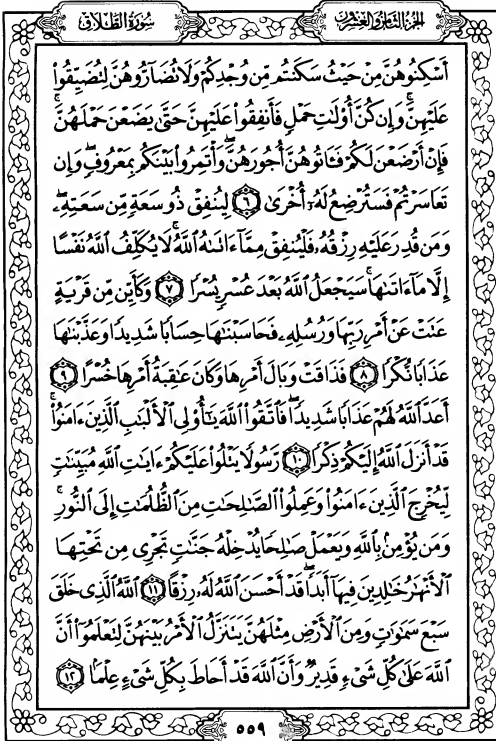 الجزء الثامن والعشرون سورة الطلاق
أَسْكِنُوهُنَّ مِنْ حَيْثُ سَكَنتُم مِّن وُجْدِكُمْ وَلَا تُضَارُّوهُنَّ لِتُضَيِّقُوا۟
عَلَيْهِنَّ ۚ وَإِن كُنَّ أُو۟لَـٰتِ حَمْلٍ فَأَنفِقُوا۟ عَلَيْهِنَّ حَتَّىٰ يَضَعْنَ حَمْلَهُنَّ ۚ
فَإِنْ أَرْضَعْنَ لَكُمْ فَـَٔاتُوهُنَّ أُجُورَهُنَّ ۖ وَأْتَمِرُوا۟ بَيْنَكُم بِمَعْرُوفٍ ۖ وَإِن
تَعَاسَرْتُمْ فَسَتُرْضِعُ لَهُۥٓ أُخْرَىٰ ٦ لِيُنفِقْ ذُو سَعَةٍ مِّن سَعَتِهِۦ ۖ
وَمَن قُدِرَ عَلَيْهِ رِزْقُهُۥ فَلْيُنفِقْ مِمَّآ ءَاتَىٰهُ ٱللَّهُ ۚ لَا يُكَلِّفُ ٱللَّهُ نَفْسًا
إِلَّا مَآ ءَاتَىٰهَا ۚ سَيَجْعَلُ ٱللَّهُ بَعْدَ عُسْرٍ يُسْرًا ٧ وَكَأَيِّن مِّن قَرْيَةٍ
عَتَتْ عَنْ أَمْرِ رَبِّهَا وَرُسُلِهِۦ فَحَاسَبْنَـٰهَا حِسَابًا شَدِيدًا وَعَذَّبْنَـٰهَا
عَذَابًا نُّكْرًا ٨ فَذَاقَتْ وَبَالَ أَمْرِهَا وَكَانَ عَـٰقِبَةُ أَمْرِهَا خُسْرًا ٩
أَعَدَّ ٱللَّهُ لَهُمْ عَذَابًا شَدِيدًا ۖ فَٱتَّقُوا۟ ٱللَّهَ يَـٰٓأُو۟لِى ٱلْأَلْبَـٰبِ ٱلَّذِينَ ءَامَنُوا۟ ۚ
قَدْ أَنزَلَ ٱللَّهُ إِلَيْكُمْ ذِكْرًا ١٠ رَّسُولًا يَتْلُوا۟ عَلَيْكُمْ ءَايَـٰتِ ٱللَّهِ مُبَيِّنَـٰتٍ
لِّيُخْرِجَ ٱلَّذِينَ ءَامَنُوا۟ وَعَمِلُوا۟ ٱلصَّـٰلِحَـٰتِ مِنَ ٱلظُّلُمَـٰتِ إِلَى ٱلنُّورِ ۚ
وَمَن يُؤْمِنۢ بِٱللَّهِ وَيَعْمَلْ صَـٰلِحًا يُدْخِلْهُ جَنَّـٰتٍ تَجْرِى مِن تَحْتِهَا
ٱلْأَنْهَـٰرُ خَـٰلِدِينَ فِيهَآ أَبَدًا ۖ قَدْ أَحْسَنَ ٱللَّهُ لَهُۥ رِزْقًا ١١ ٱللَّهُ ٱلَّذِى خَلَقَ
سَبْعَ سَمَـٰوَٰتٍ وَمِنَ ٱلْأَرْضِ مِثْلَهُنَّ يَتَنَزَّلُ ٱلْأَمْرُ بَيْنَهُنَّ لِتَعْلَمُوٓا۟ أَنَّ
ٱللَّهَ عَلَىٰ كُلِّ شَىْءٍ قَدِيرٌ وَأَنَّ ٱللَّهَ قَدْ أَحَاطَ بِكُلِّ شَىْءٍ عِلْمًۢا ١٢
٥٥٩